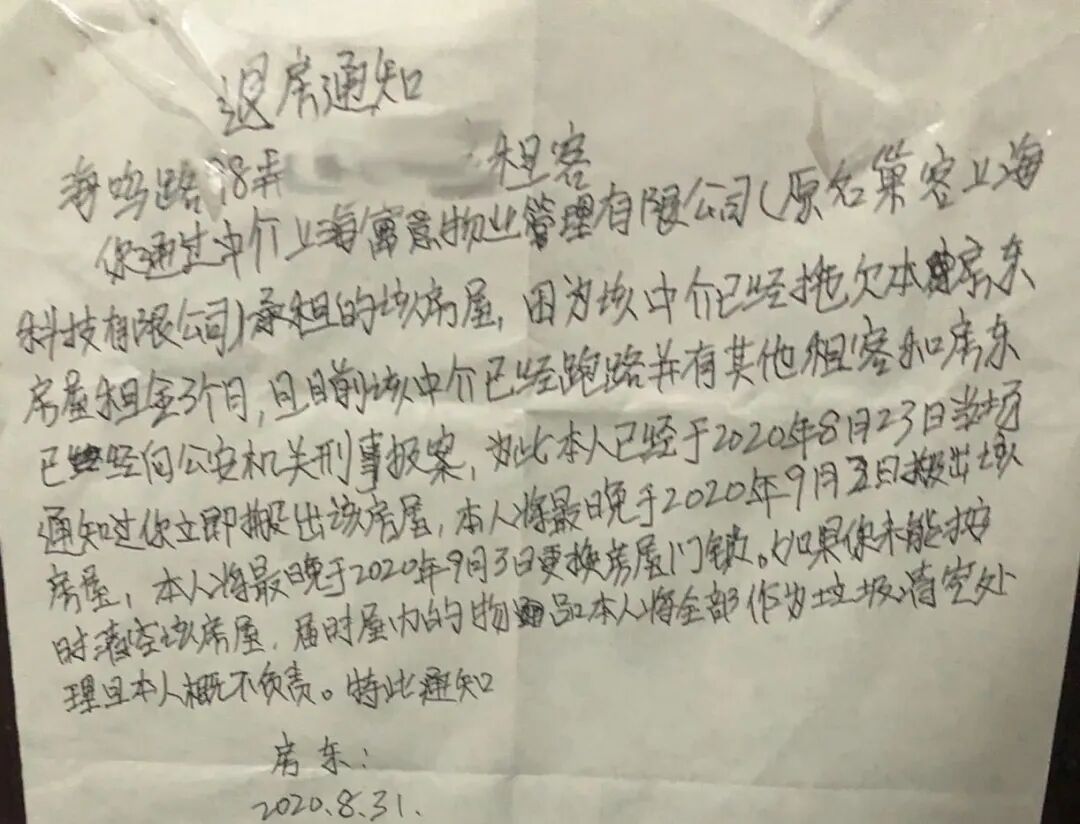 退房通知
海鸣路78弄 租客
你通过中介上海寓意物业管理有限公司(原名巢客上海
科技有限公司)承租的该房屋，因为该中介已经拖欠本房东
房屋租金3个月，且目前该中介已经跑路并有其他租客和房东
已经向公安机关刑事报案，为此本人已经于2020年8月23日当场
通知过你立即搬出该房屋，本人将最晚于2020年9月3日搬出该
房屋，本人将最晚于2020年9月3日更换房屋门锁。如果你未能按
时清空该房屋，届时屋内的物品本人将全部作为垃圾清空处
理且本人概不负责。特此通知
房东：
2020.8.31.